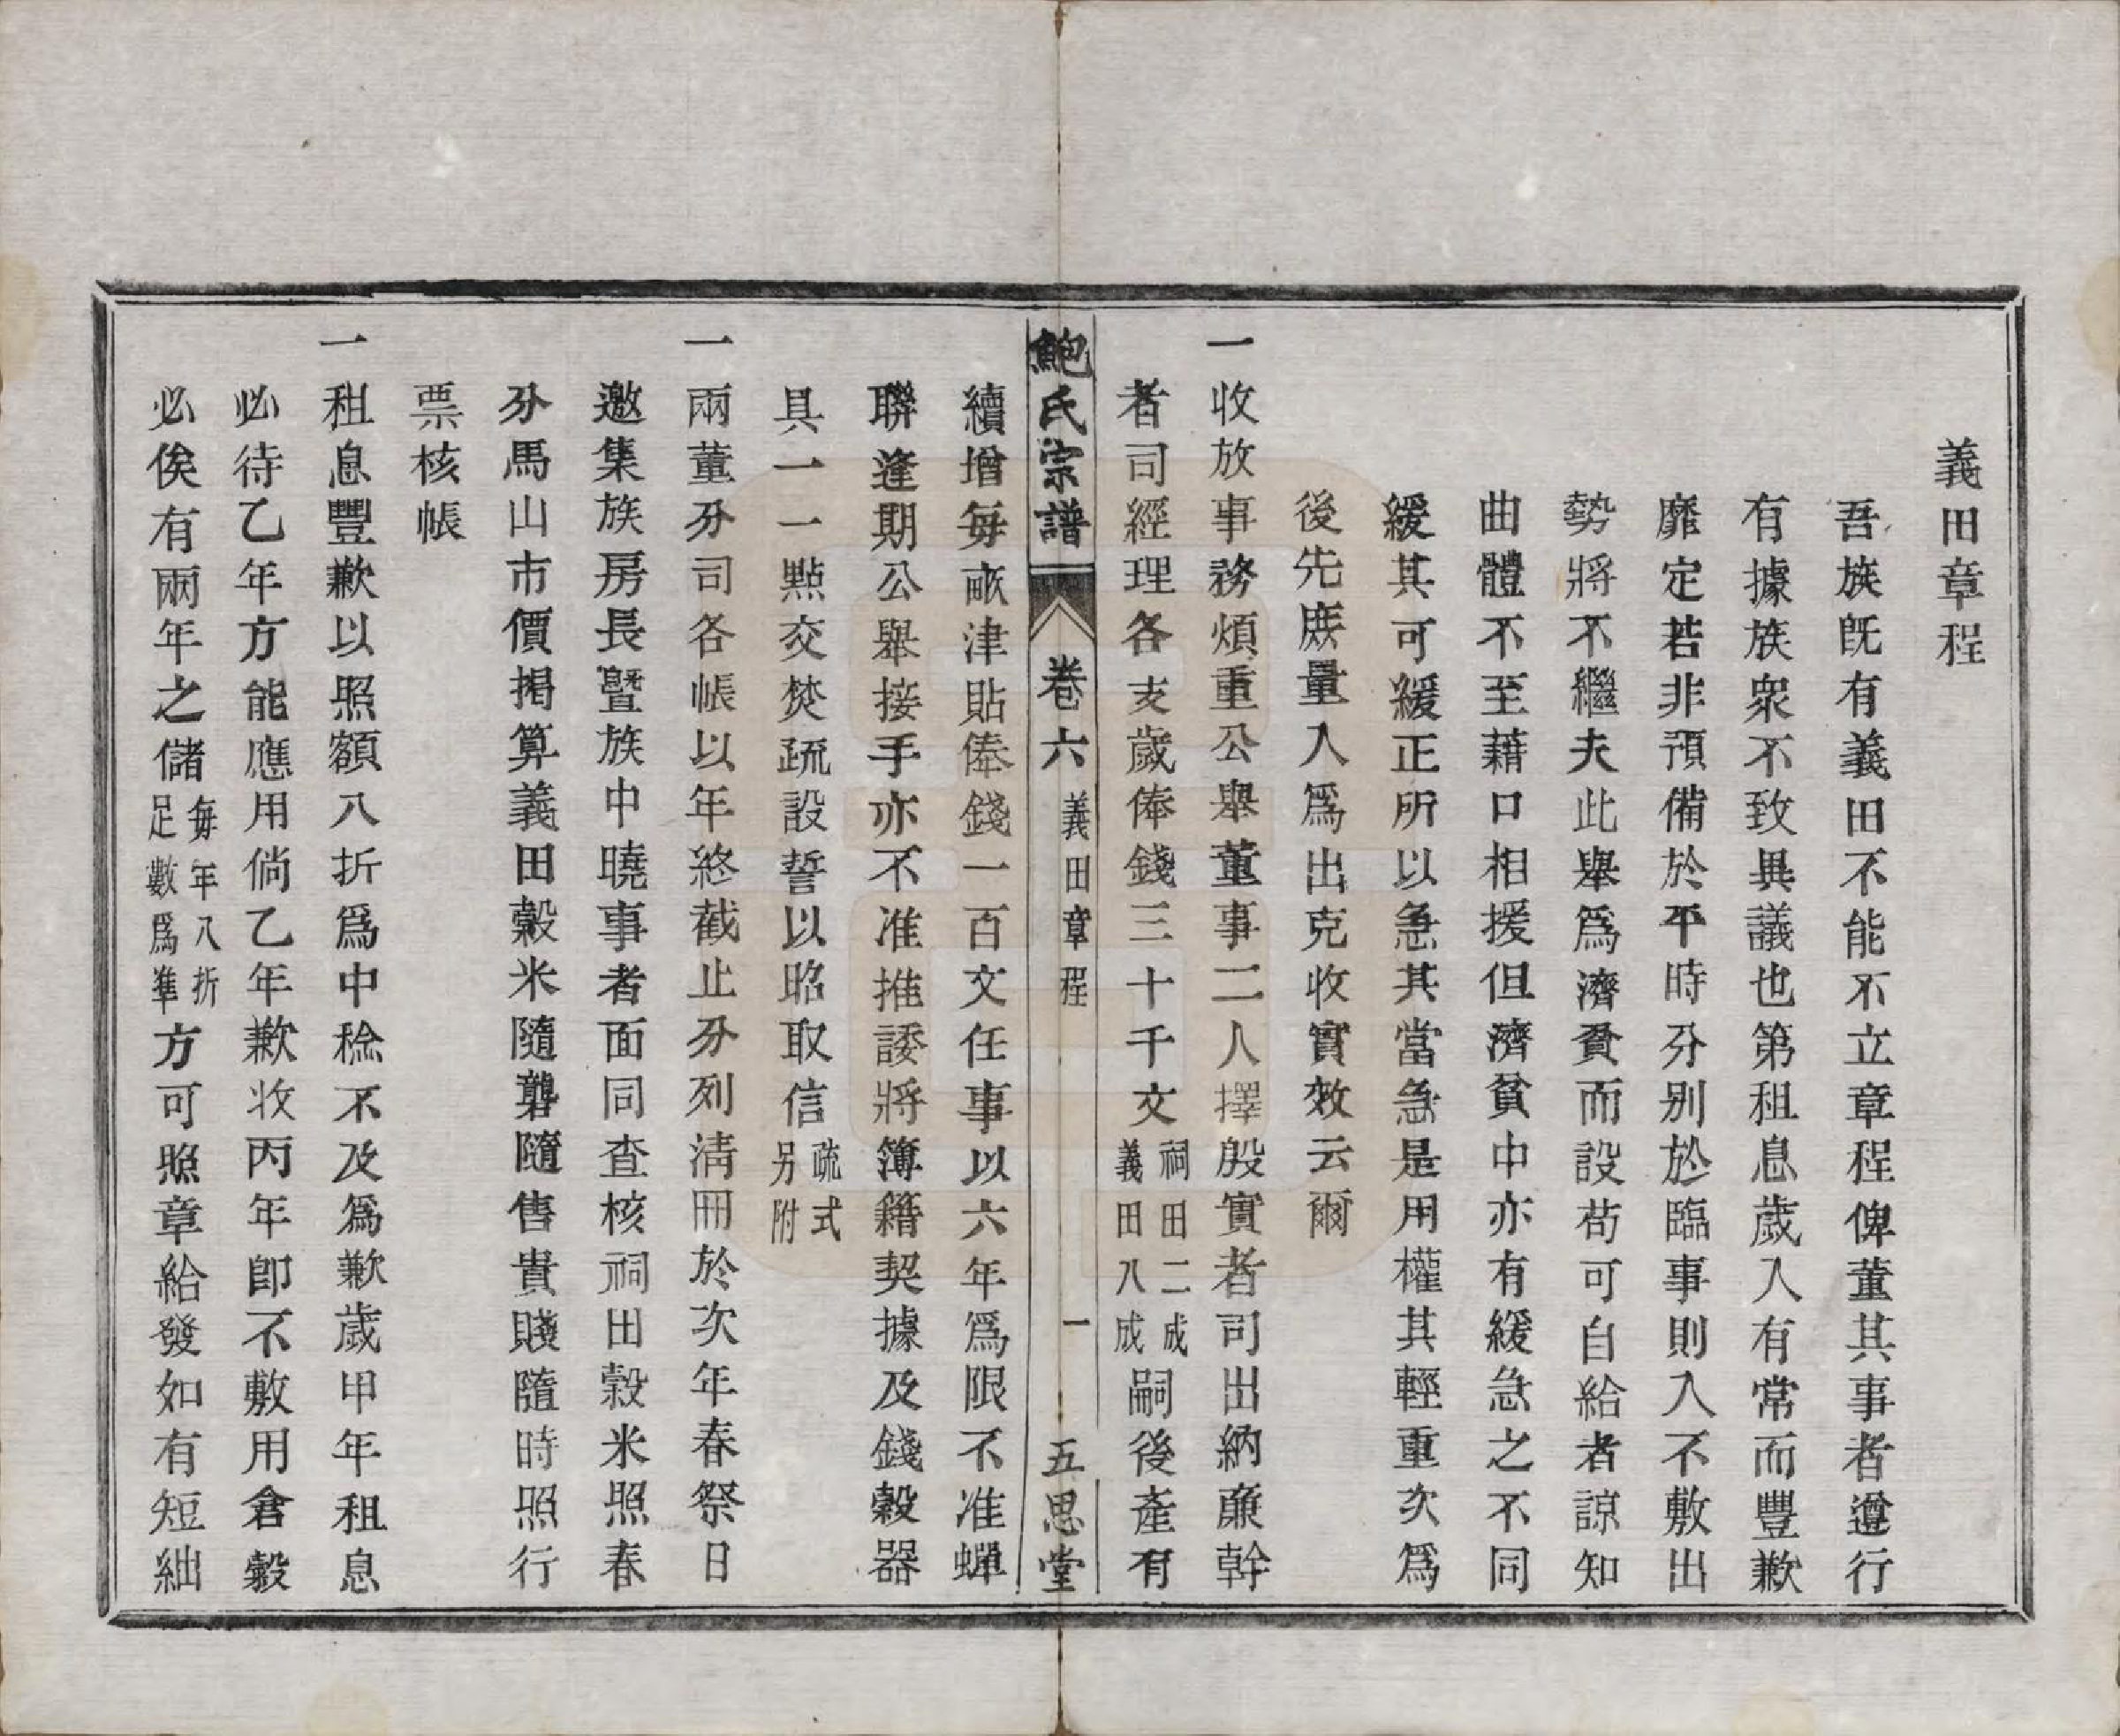 義田章程
吾族旣有義田不能不立章程俾董其事者遵行
有據族衆不致異議也第租息歲入有常而豐歉
靡定若非預備於平時分別於臨事則入不敷出
勢將不繼夫此舉爲濟貧而設苟可自給者諒知
曲體不至藉口相援但濟貧中亦有緩急之不同
緩其可緩正所以急其當急是用權其輕重次爲
後先庶量入爲出克收實效云爾
一收放事務煩重公舉董事二人擇殷實者司出納廉幹
者司經理各支歲俸錢三十千文祠田二成義田八成嗣後產有
鮑氏宗譜 卷六 義田章程 一 五思堂
續增每畝津貼俸錢一百文任事以六年爲限不准蟬
聯逢期公舉接手亦不准推諉將簿籍契據及錢穀器
具一一點交焚疏設誓以昭取信疏式另附
一兩董分司各帳以年終截止分列淸冊於次年春祭日
邀集族房長曁族中曉事者面同查核祠田穀米照春
分馬山市價揭算義田穀米隨礱隨售貴賤隨時照行
票核帳
一租息豐歉以照額八折爲中稔不及爲歉歲甲年租息
必待乙年方能應用倘乙年歉收丙年卽不敷用倉穀
必俟有兩年之儲每年八折足數爲準方可照章給發如有短絀